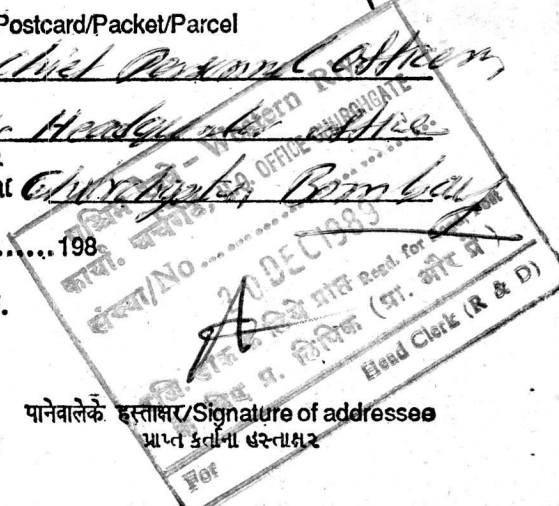 Postcard/Packet/Parcel
Chief Personnel Officer,
Headquarter office
at Churchgate, Bombay
पश्चिम रेलवे - Western Rly
कार्या. चर्चगेट, G.O. OFFICE CHURCHGATE
संख्या/No..................
20 DEC 1989
.......198
रजि. डाक के लिये प्राप्त Recd. for
प्र. लिपिक (प्रा. और प्रे.)
Head Clerk (R & D)
पानेवालेके हस्ताक्षर/Signature of addressee
પ્રાપ્ત કર્તાના હસ્તાક્ષર
For